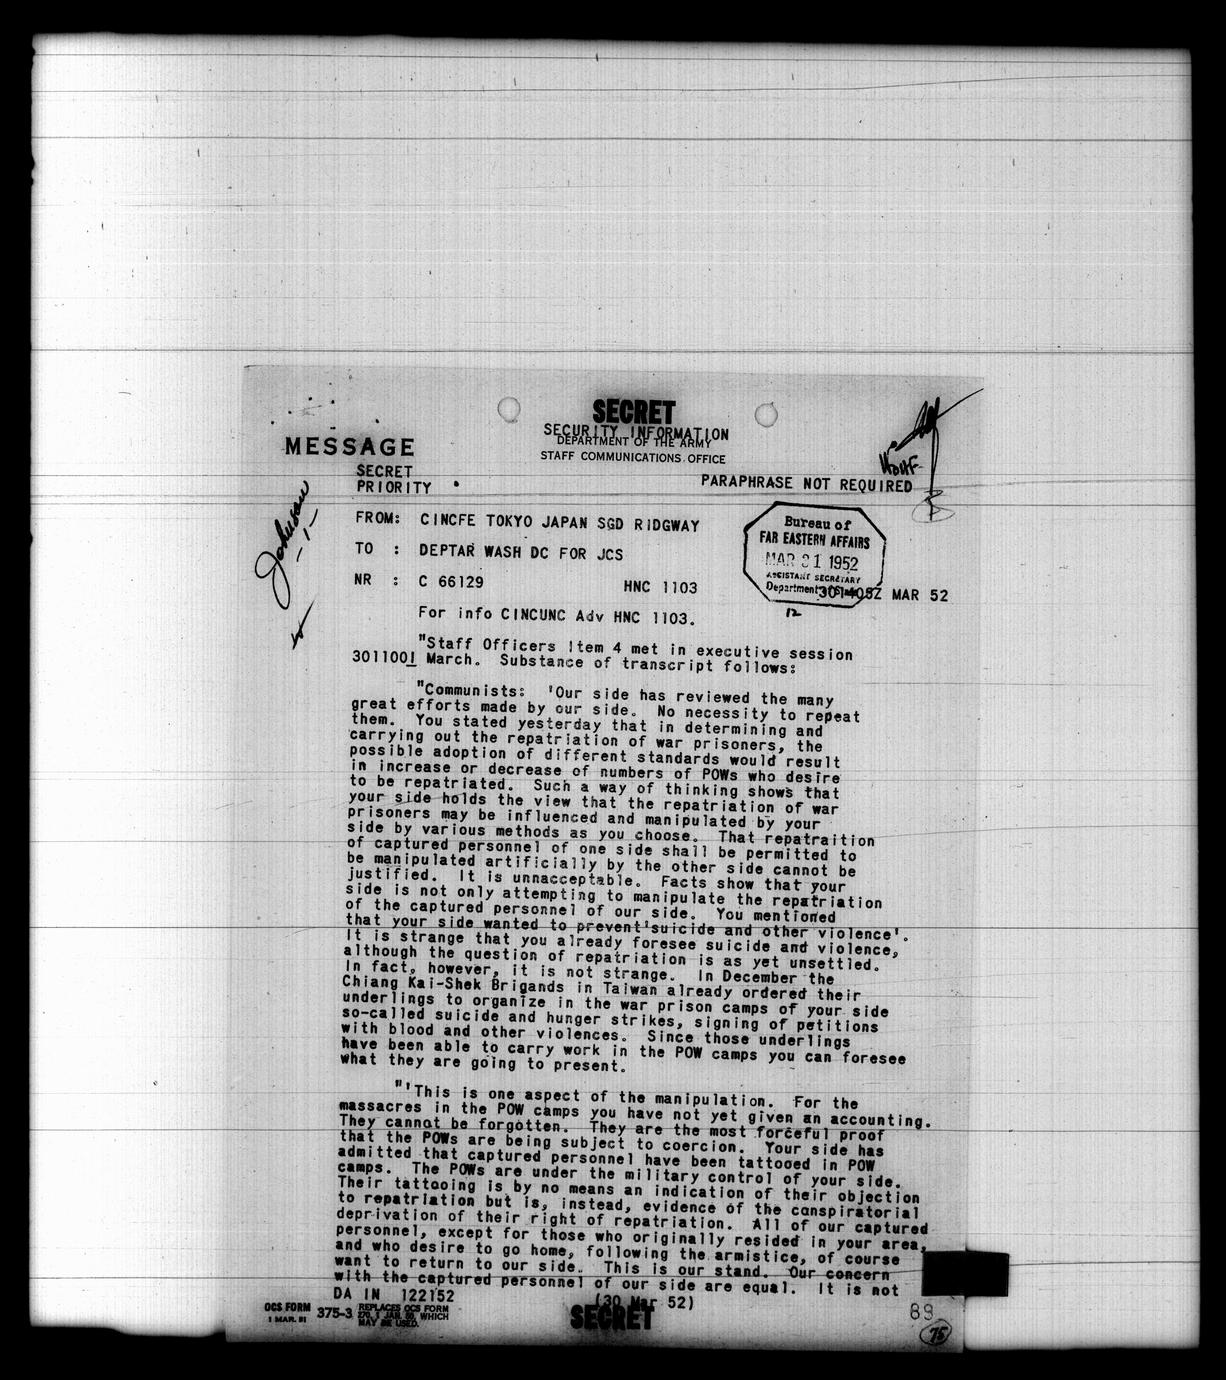 SECRET
SECURITY INFORMATION
DEPARTMENT OF THE ARMY
STAFF COMMUNICATIONS OFFICE
MESSAGE
SECRET
PRIORITY
PARAPHRASE NOT REQUIRED
Johnson
-1-
FROM: CINCFE TOKYO JAPAN SGD RIDGWAY
TO : DEPTAR WASH DC FOR JCS
NR : C 66129 HNC 1103
Bureau of
FAR EASTERN AFFAIRS
MAR 31 1952
ASSISTANT SECRETARY
Department of State
301405Z MAR 52
12
For info CINCUNC Adv HNC 1103.
"Staff Officers Item 4 met in executive session
301100I March. Substance of transcript follows:
"Communists: 'Our side has reviewed the many
great efforts made by our side. No necessity to repeat
them. You stated yesterday that in determining and
carrying out the repatriation of war prisoners, the
possible adoption of different standards would result
in increase or decrease of numbers of POWs who desire
to be repatriated. Such a way of thinking shows that
your side holds the view that the repatriation of war
prisoners may be influenced and manipulated by your
side by various methods as you choose. That repatraition
of captured personnel of one side shall be permitted to
be manipulated artificially by the other side cannot be
justified. It is unnacceptable. Facts show that your
side is not only attempting to manipulate the repatriation
of the captured personnel of our side. You mentioned
that your side wanted to prevent'suicide and other violence'.
It is strange that you already foresee suicide and violence,
although the question of repatriation is as yet unsettled.
In fact, however, it is not strange. In December the
Chiang Kai-Shek Brigands in Taiwan already ordered their
underlings to organize in the war prison camps of your side
so-called suicide and hunger strikes, signing of petitions
with blood and other violences. Since those underlings
have been able to carry work in the POW camps you can foresee
what they are going to present.
"'This is one aspect of the manipulation. For the
massacres in the POW camps you have not yet given an accounting.
They cannot be forgotten. They are the most forceful proof
that the POWs are being subject to coercion. Your side has
admitted that captured personnel have been tattooed in POW
camps. The POWs are under the military control of your side.
Their tattooing is by no means an indication of their objection
to repatriation but is, instead, evidence of the conspiratorial
deprivation of their right of repatriation. All of our captured
personnel, except for those who originally resided in your area,
and who desire to go home, following the armistice, of course
want to return to our side. This is our stand. Our concern
with the captured personnel of our side are equal. It is not
DA IN 122152 (30 Mar 52)
OCS FORM 375-3 REPLACES OCS FORM
1 MAR. 51 MAY BE USED.
SECRET
89
75